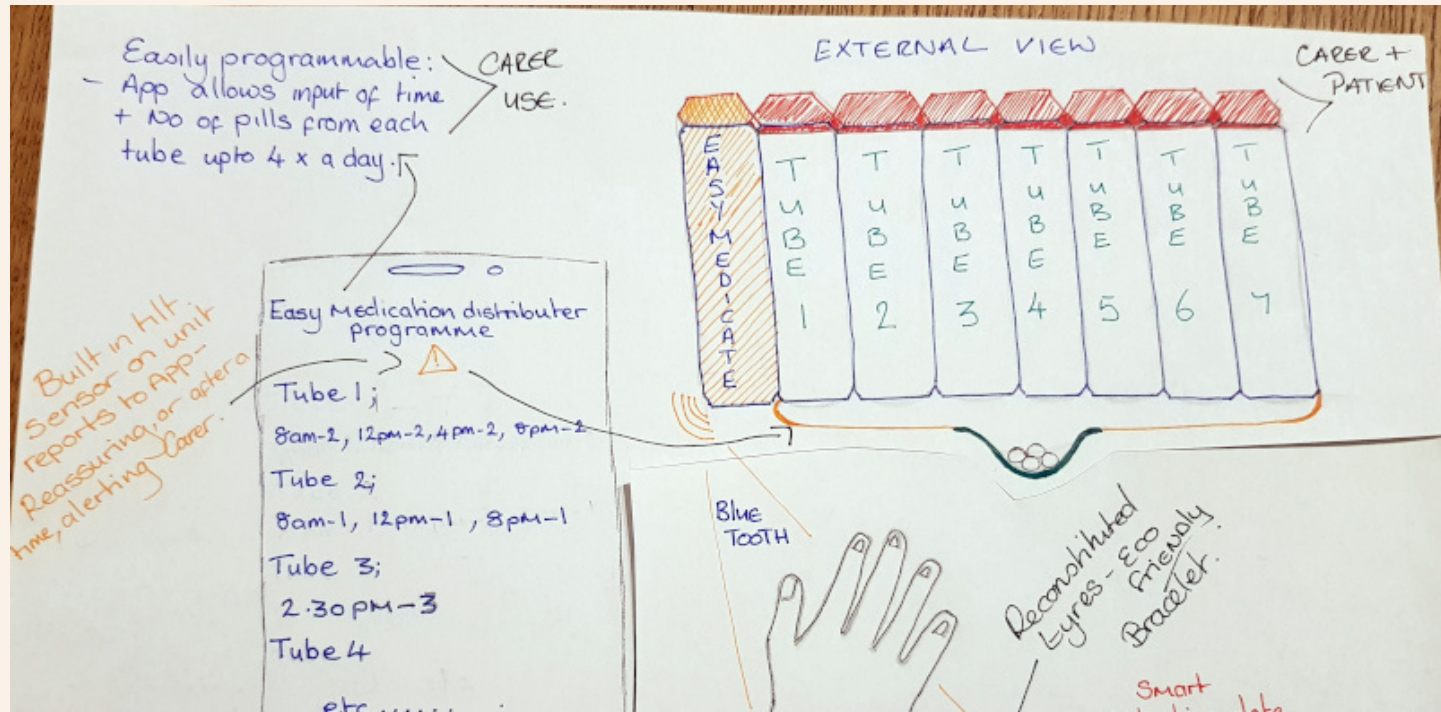 Easily programmable:
- App allows input of time
+ No of pills from each
tube upto 4 x a day.
CARER
USE.
EXTERNAL VIEW
CARER +
PATIENT
EASYMEDICATE
TUBE 1
TUBE 2
TUBE 3
TUBE 4
TUBE 5
TUBE 6
TUBE 7
Built in tilt
sensor on unit
reports to App-
Reassuring, or after a
time, alerting Carer.
Easy Medication distributer
programme
Tube 1;
8am-2, 12pm-2, 4pm-2, 8pm-2
Tube 2;
8am-1, 12pm-1, 8pm-1
Tube 3;
2.30pm-3
Tube 4
etc......
BLUE
TOOTH
Reconstituted
tyres - Eco
friendly
Bracelet.
Smart